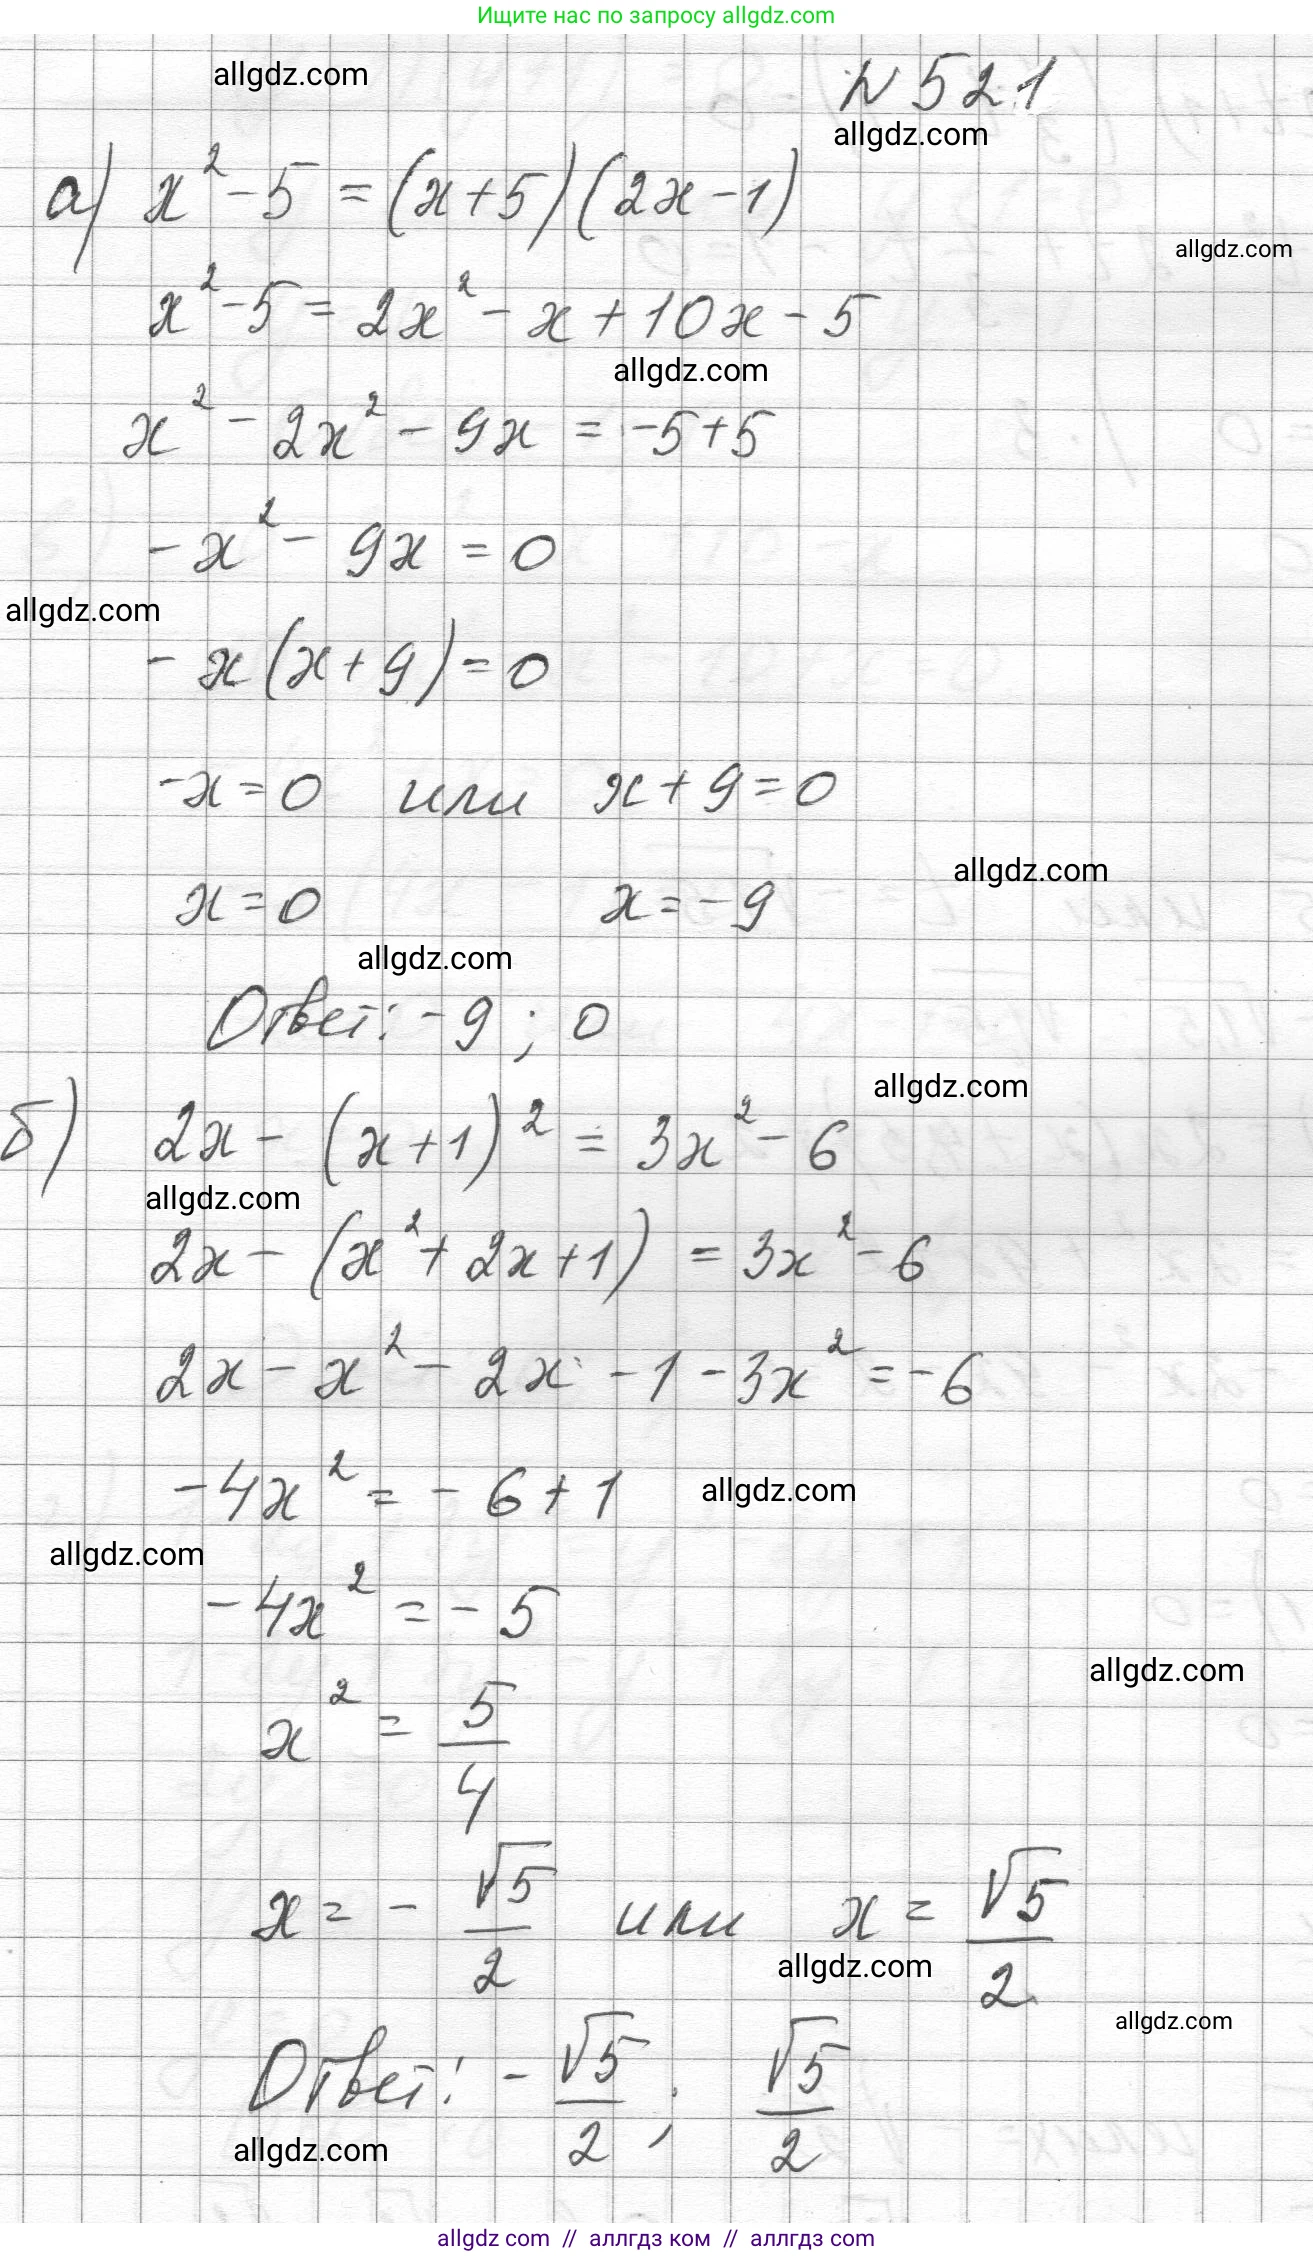 Ищите нас по запросу allgdz.com
allgdz.com
N 521
allgdz.com
а) x² - 5 = (x+5)(2x-1)
allgdz.com
x² - 5 = 2x² - x + 10x - 5
allgdz.com
x² - 2x² - 9x = -5+5
-x² - 9x = 0
allgdz.com
-x(x+9) = 0
-x = 0 или x+9=0
allgdz.com
x=0 x=-9
allgdz.com
Ответ: -9; 0
allgdz.com
б) 2x - (x+1)² = 3x² - 6
allgdz.com
2x - (x² + 2x+1) = 3x² - 6
2x - x² - 2x - 1 - 3x² = -6
-4x² = -6+1
allgdz.com
allgdz.com
-4x² = -5
allgdz.com
x² = 5/4
x = - √5/2 или x = √5/2
allgdz.com
allgdz.com
Ответ: - √5/2; √5/2
allgdz.com
allgdz com // аллгдз ком // аллгдз com